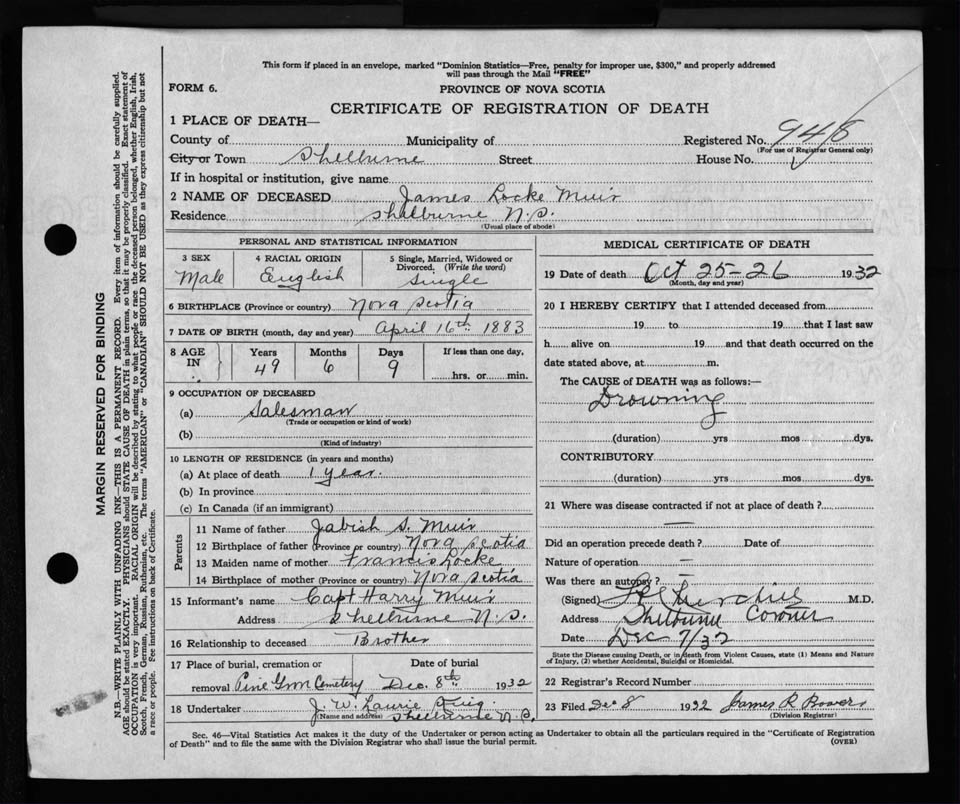 This form if placed in an envelope, marked "Dominion Statistics—Free, penalty for improper use, $300," and properly addressed
will pass through the Mail "FREE"
FORM 6.
PROVINCE OF NOVA SCOTIA
CERTIFICATE OF REGISTRATION OF DEATH
1 PLACE OF DEATH—
County of Municipality of Registered No. 
(For use of Registrar General only)
City or Town Shelburne Street House No.
If in hospital or institution, give name
2 NAME OF DECEASED James Locke Muir
Residence Shelburne N.S.
(Usual place of abode)
PERSONAL AND STATISTICAL INFORMATION
3 SEX 4 RACIAL ORIGIN 5 Single, Married, Widowed or
Divorced. (Write the word)
Male English Single
6 BIRTHPLACE (Province or country) Nova Scotia
7 DATE OF BIRTH (month, day and year) April 16th 1883
8 AGE IN Years Months Days If less than one day,
49 6 9 hrs. or min.
9 OCCUPATION OF DECEASED
(a) Salesman
(Trade or occupation or kind of work)
(b)
(Kind of industry)
10 LENGTH OF RESIDENCE (in years and months)
(a) At place of death 1 year.
(b) In province
(c) In Canada (if an immigrant)
Parents
11 Name of father Jabish S. Muir
12 Birthplace of father (Province or country) Nova Scotia
13 Maiden name of mother Francis Locke
14 Birthplace of mother (Province or Country) Nova Scotia
15 Informant's name Capt Harry Muir
Address Shelburne N.S.
16 Relationship to deceased Brother
17 Place of burial, cremation or Date of burial
removal Pine Grove Cemetery Dec. 8th 1932
18 Undertaker J. W. Laurie
(Name and address) Shelburne N.S.
MEDICAL CERTIFICATE OF DEATH
19 Date of death Oct 25-26 1932
(Month, day and year)
20 I HEREBY CERTIFY that I attended deceased from
19 to 19 that I last saw
h alive on 19 and that death occurred on the
date stated above, at m.
The CAUSE of DEATH was as follows:—
Drowning
(duration) yrs mos dys.
CONTRIBUTORY
(duration) yrs mos dys.
21 Where was disease contracted if not at place of death?
—
Did an operation precede death? Date of
Nature of operation —
Was there an autopsy? —
(Signed) M.D.
Address Shelburne Coroner
Date Dec 7/32
State the Disease causing Death, or in death from Violent Causes, state (1) Means and Nature
of Injury, (2) whether Accidental, Suicidal or Homicidal.
22 Registrar's Record Number
23 Filed Dec 8 1932 James R Bowers
(Division Registrar)
Sec. 46—Vital Statistics Act makes it the duty of the Undertaker or person acting as Undertaker to obtain all the particulars required in the "Certificate of Registration
of Death" and to file the same with the Division Registrar who shall issue the burial permit. (OVER)
MARGIN RESERVED FOR BINDING
N.B.—WRITE PLAINLY WITH UNFADING INK—THIS IS A PERMANENT RECORD. Every item of information should be carefully supplied.
AGE should be stated EXACTLY. PHYSICIANS should STATE CAUSE OF DEATH in plain terms, so that it may be properly classified. Exact statement of
OCCUPATION is very important. RACIAL ORIGIN will be described by stating to what people or race the deceased person belonged, whether English, Irish,
Scotch, French, German, Russian, Ruthenian, etc. The terms "AMERICAN" or "CANADIAN" SHOULD NOT BE USED as they express citizenship but not
a race or people. See instructions on back of Certificate.